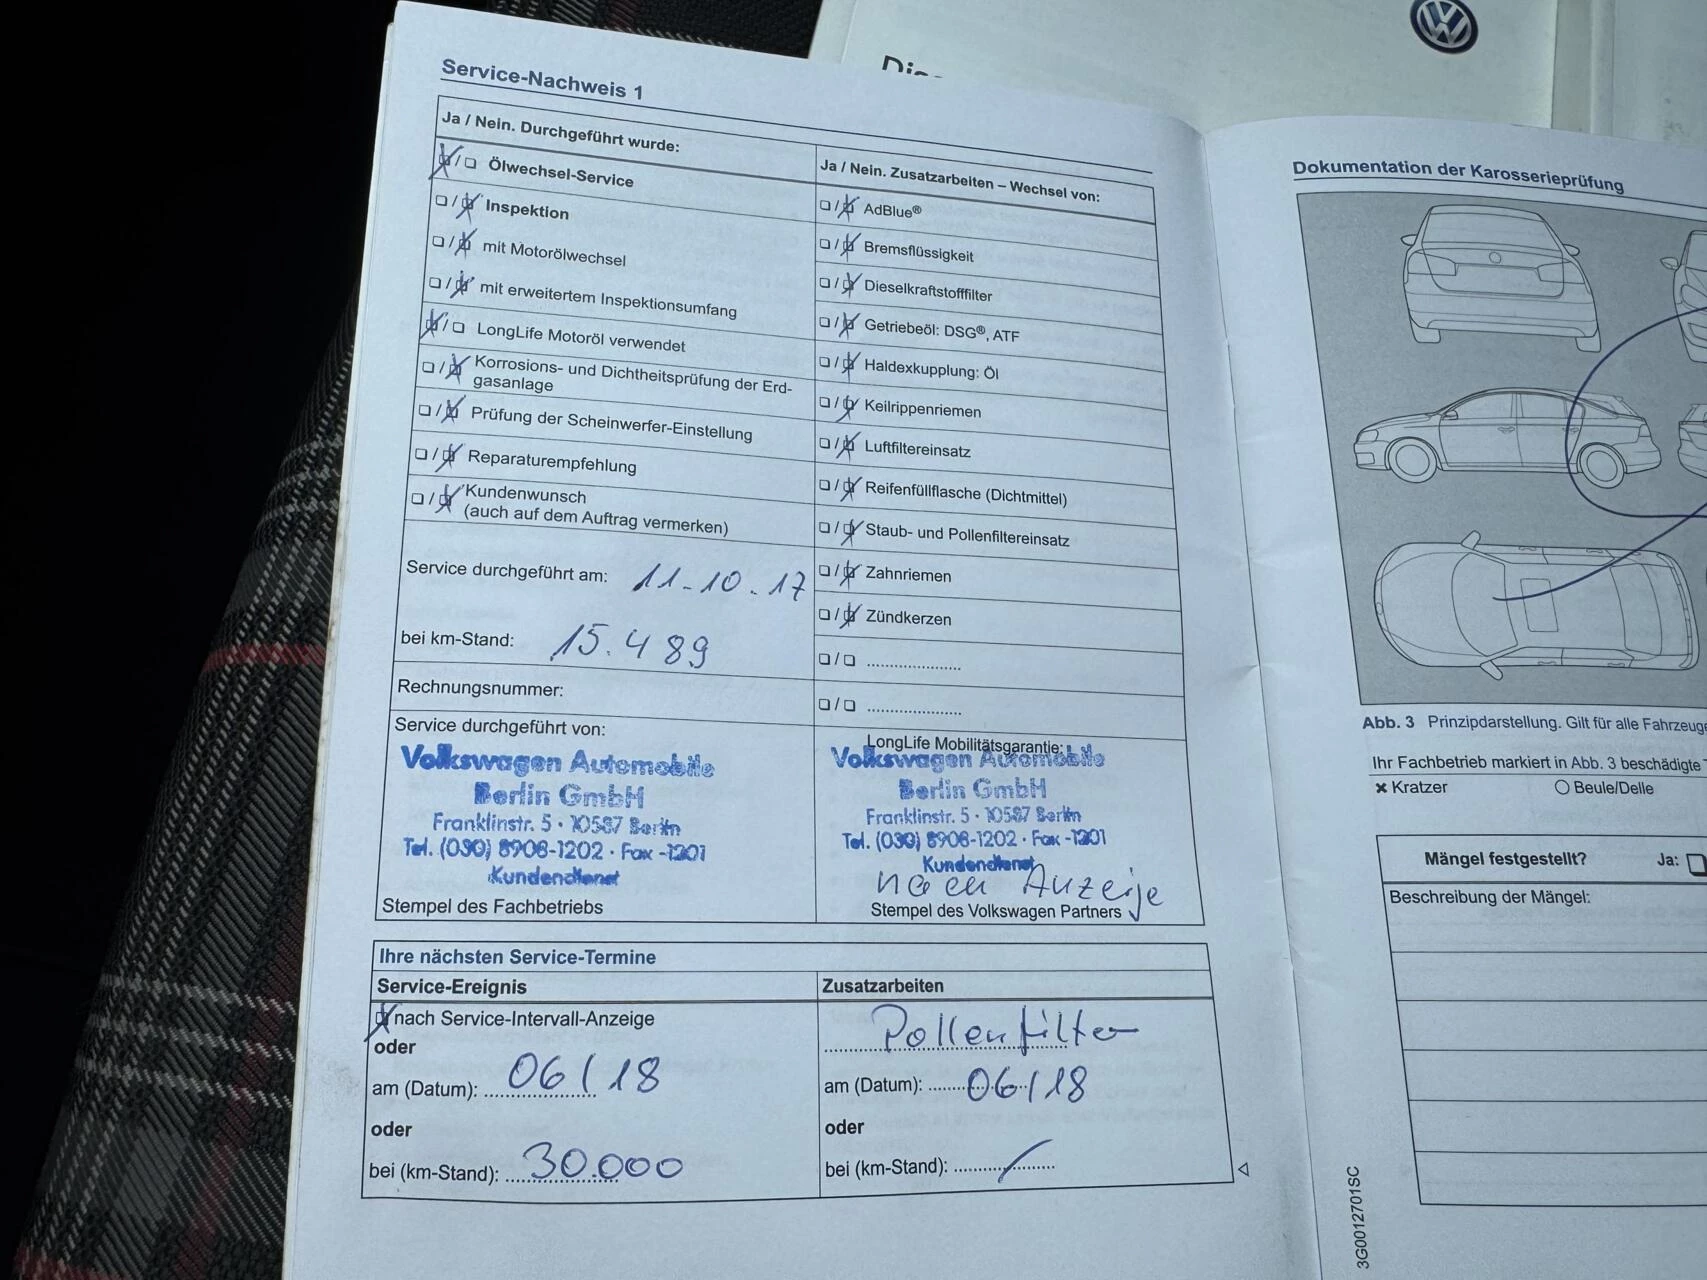 Service-Nachweis 1
Ja / Nein. Durchgeführt wurde:
Ölwechsel-Service
Inspektion
mit Motorölwechsel
mit erweitertem Inspektionsumfang
LongLife Motoröl verwendet
Korrosions- und Dichtheitsprüfung der Erd-
gasanlage
Prüfung der Scheinwerfer-Einstellung
Reparaturempfehlung
Kundenwunsch
(auch auf dem Auftrag vermerken)
Service durchgeführt am: 11-10.17
bei km-Stand: 15.489
Rechnungsnummer:
Service durchgeführt von:
Volkswagen Automobile
Berlin GmbH
Franklinstr. 5 · 10587 Berlin
Tel. (030) 8908-1202 · Fax -1201
Kundendienst
Stempel des Fachbetriebs
Ja / Nein. Zusatzarbeiten – Wechsel von:
AdBlue®
Bremsflüssigkeit
Dieselkraftstofffilter
Getriebeöl: DSG®, ATF
Haldexkupplung: Öl
Keilrippenriemen
Luftfiltereinsatz
Reifenfüllflasche (Dichtmittel)
Staub- und Pollenfiltereinsatz
Zahnriemen
Zündkerzen
LongLife Mobilitätsgarantie:
Volkswagen Automobile
Berlin GmbH
Franklinstr. 5 · 10587 Berlin
Tel. (030) 8908-1202 · Fax -1201
Kundendienst
nach Anzeige
Stempel des Volkswagen Partners
Ihre nächsten Service-Termine
Service-Ereignis
nach Service-Intervall-Anzeige
oder
am (Datum): 06/18
oder
bei (km-Stand): 30.000
Zusatzarbeiten
Pollenfilter
am (Datum): 06/18
oder
bei (km-Stand): /
Dokumentation der Karosserieprüfung
Abb. 3 Prinzipdarstellung. Gilt für alle Fahrzeuge
Ihr Fachbetrieb markiert in Abb. 3 beschädigte
Kratzer
Beule/Delle
Mängel festgestellt? Ja:
Beschreibung der Mängel:
3G0012701SC